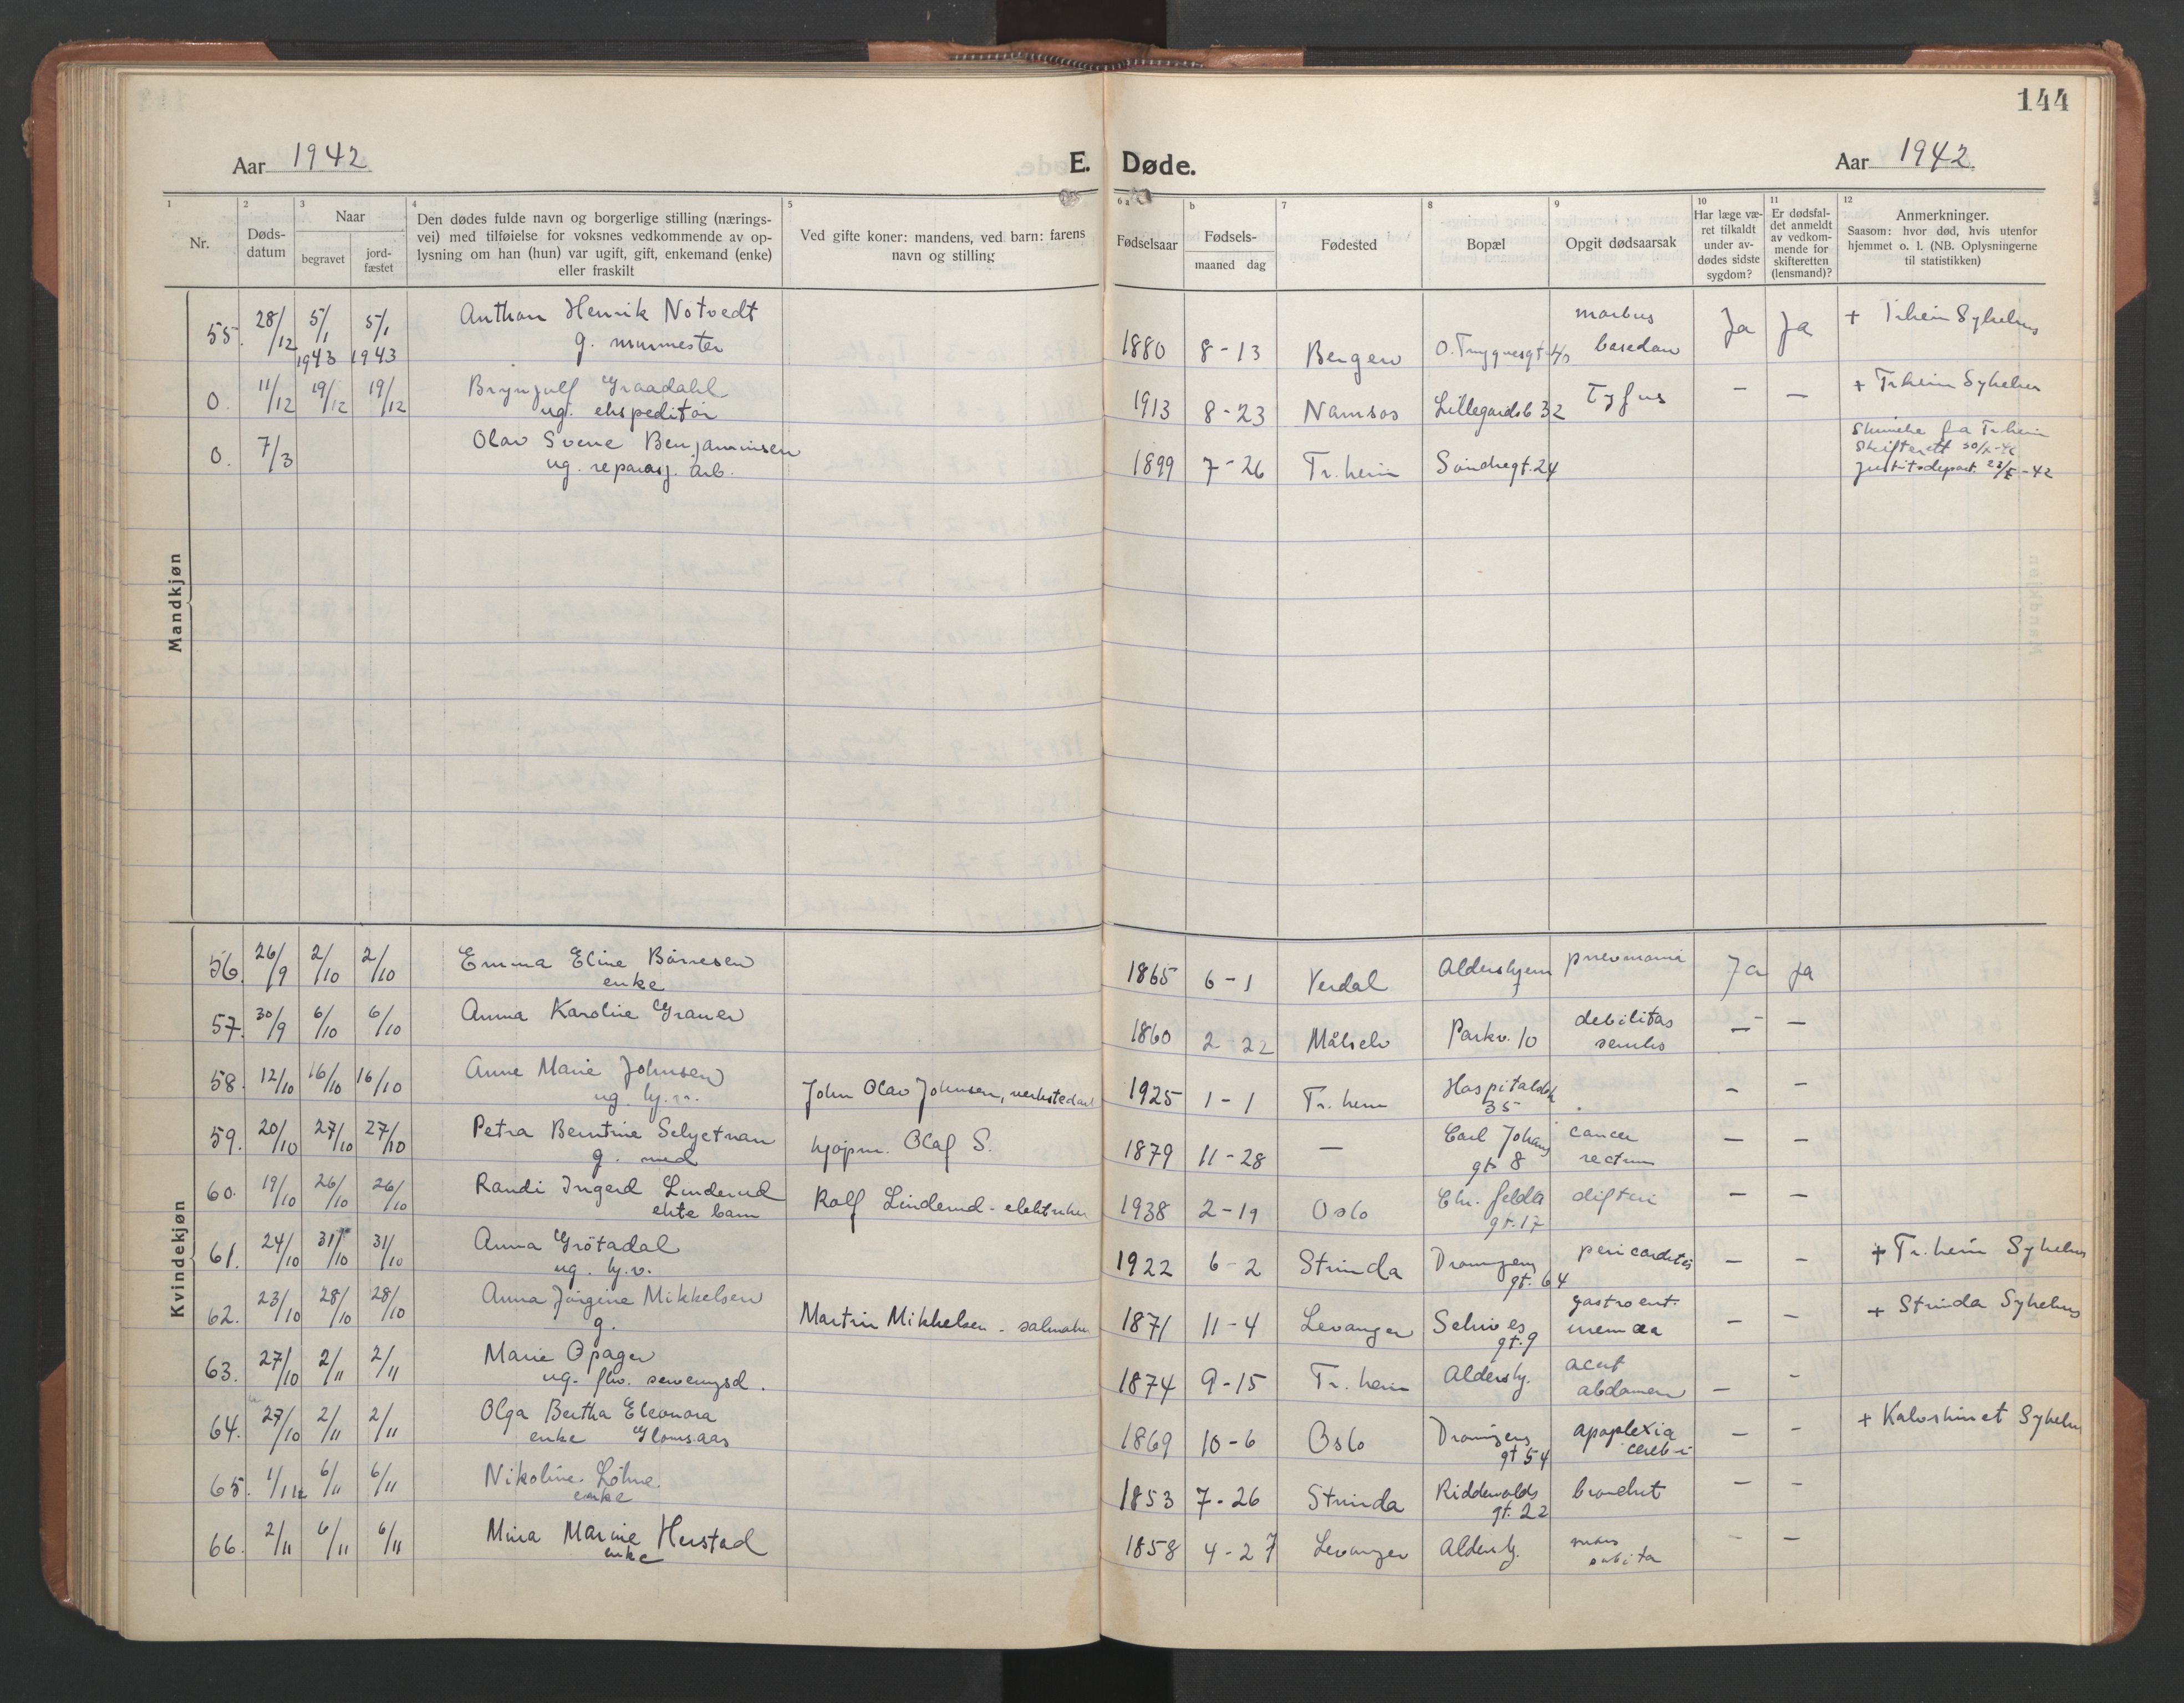 144
Aar 1942 E. Døde. Aar 1942
1 2 3 4 5 6 a b 7 8 9 10 11 12
Nr.
Døds-
datum
Naar
begravet
jord-
fæstet
Den dødes fulde navn og borgerlige stilling (nærings-
vei) med tilføielse for voksnes vedkommende av op-
lysning om han (hun) var ugift, gift, enkemand (enke)
eller fraskilt
Ved gifte koner: mandens, ved barn: farens
navn og stilling
Fødselsaar
Fødsels-
maaned dag
Fødested
Bopæl
Opgit dødsaarsak
Har læge væ-
ret tilkaldt
under av-
dødes sidste
sygdom?
Er dødsfal-
det anmeldt
av vedkom-
mende for
skifteretten
(lensmand)?
Anmerkninger.
Saasom: hvor død, hvis utenfor
hjemmet o. l. (NB. Oplysningerne
til statistikken)
Mandkjøn
55. 28/12 5/1 1943 5/1 1943 Anthon Henrik Notvedt 1880 8-13 Bergen O. Trygvesgt. morbus Ja Ja + Trheim Sykehus
g. murmester basedow
0. 11/12 19/12 19/12 Brynjulf Graadahl 1913 8-23 Namsos Lillegårdsb 32 Tyfus — — + Trheim Sykehus
ug. ekspeditør
0. 7/3 Olav Svene Benjaminsen 1899 7-26 Tr.heim Søndregt. 24 Skrivelse fra Tr.heim
ug. reparasj. arb. Skifterett
Justitsdepart. -42
Kvindekjøn
56. 26/9 2/10 2/10 Emma Eline Børresen 1865 6-1 Verdal Aldershjem pneumoni Ja Ja
enke
57. 30/9 6/10 6/10 Anna Karoline Graner 1860 2-22 Målselv Parkv. 10 debilitas — —
senilis
58. 12/10 16/10 16/10 Anne Marie Johnsen John Olav Johnsen, verkstedarb 1925 1-1 Tr.heim Hospitalsløk — —
ug. hj.v. 35
59. 20/10 27/10 27/10 Petra Berntine Selyetnan kjøpm. Olaf S. 1879 11-28 — Carl Johans cancer — —
g. med gt. 8 rectum
60. 19/10 26/10 26/10 Randi Ingerd Linderud Rolf Linderud - elektriker 1938 2-19 Oslo Chr. Jelsta difteri — —
ekte barn gt. 17
61. 24/10 31/10 31/10 Anna Grøtadal 1922 6-2 Strinda Dronnigens pericarditis — — + Tr.heim Sykehus
ug. hj.v. gt. 64
62. 23/10 28/10 28/10 Anna Jørgine Mikkelsen Martin Mikkelsen - salmaker 1871 11-4 Levanger Schives gastroent. — — + Strinda Sykehus
g. gt. 9 uremia
63. 27/10 2/11 2/11 Marie Opager 1874 9-15 Tr.heim Aldershj. acut — —
ug. fhv. serveringsd. abdomen
64. 27/10 2/11 2/11 Olga Bertha Eleonora 1869 10-6 Oslo Dronnigens apoplexia — — + Kalvskinnet Sykehus
enke Glomsaas gt 54 cerebri
65. 1/11 6/11 6/11 Nikoline Løhre 1853 7-26 Strinda Riddervolds bronchit — —
enke gt. 22
66. 2/11 6/11 6/11 Mina Marine Herstad 1858 4-27 Levanger Aldershj. mors — —
enke subita